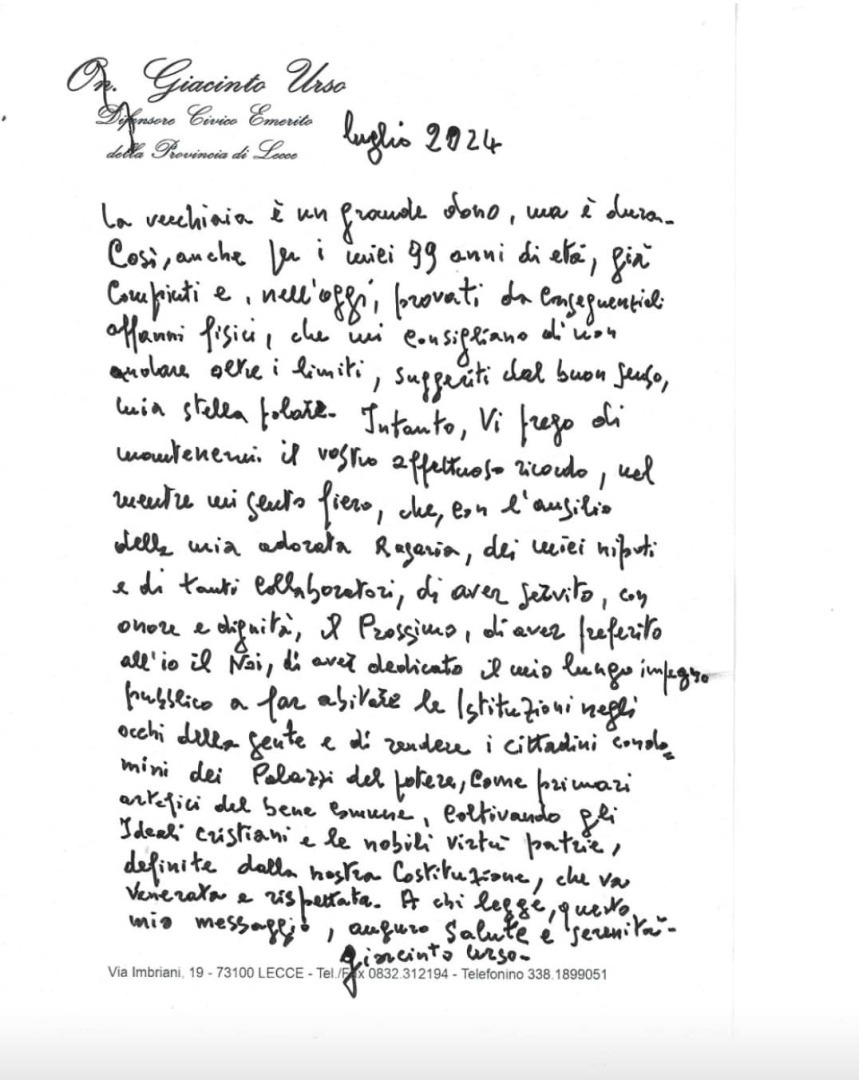 On. Giacinto Urso
Difensore Civico Emerito
della Provincia di Lecce
luglio 2024
La vecchiaia è un grande dono, ma è dura.
Così, anche per i miei 99 anni di età, già
compiuti e, nell'oggi, provati da conseguenziali
affanni fisici, che mi consigliano di non
andare oltre i limiti, suggeriti dal buon senso,
mia stella polare. Intanto, Vi prego di
mantenermi il vostro affettuoso ricordo, nel
mentre mi sento fiero, che, con l'ausilio
della mia adorata Rosaria, dei miei nipoti
e di tanti collaboratori, di aver servito, con
onore e dignità, il Prossimo, di aver preferito
all'io il Noi, di aver dedicato il mio lungo impegno
pubblico a far abitare le Istituzioni negli
occhi della gente e di rendere i cittadini condo=
mini dei Palazzi del potere, come primari
artefici del bene comune, coltivando gli
Ideali cristiani e le nobili virtù patrie,
definite dalla nostra Costituzione, che va
venerata e rispettata. A chi legge, questo
mio messaggio, auguro Salute e serenità-
Giacinto Urso-
Via Imbriani, 19 - 73100 LECCE - Tel./Fax 0832.312194 - Telefonino 338.1899051